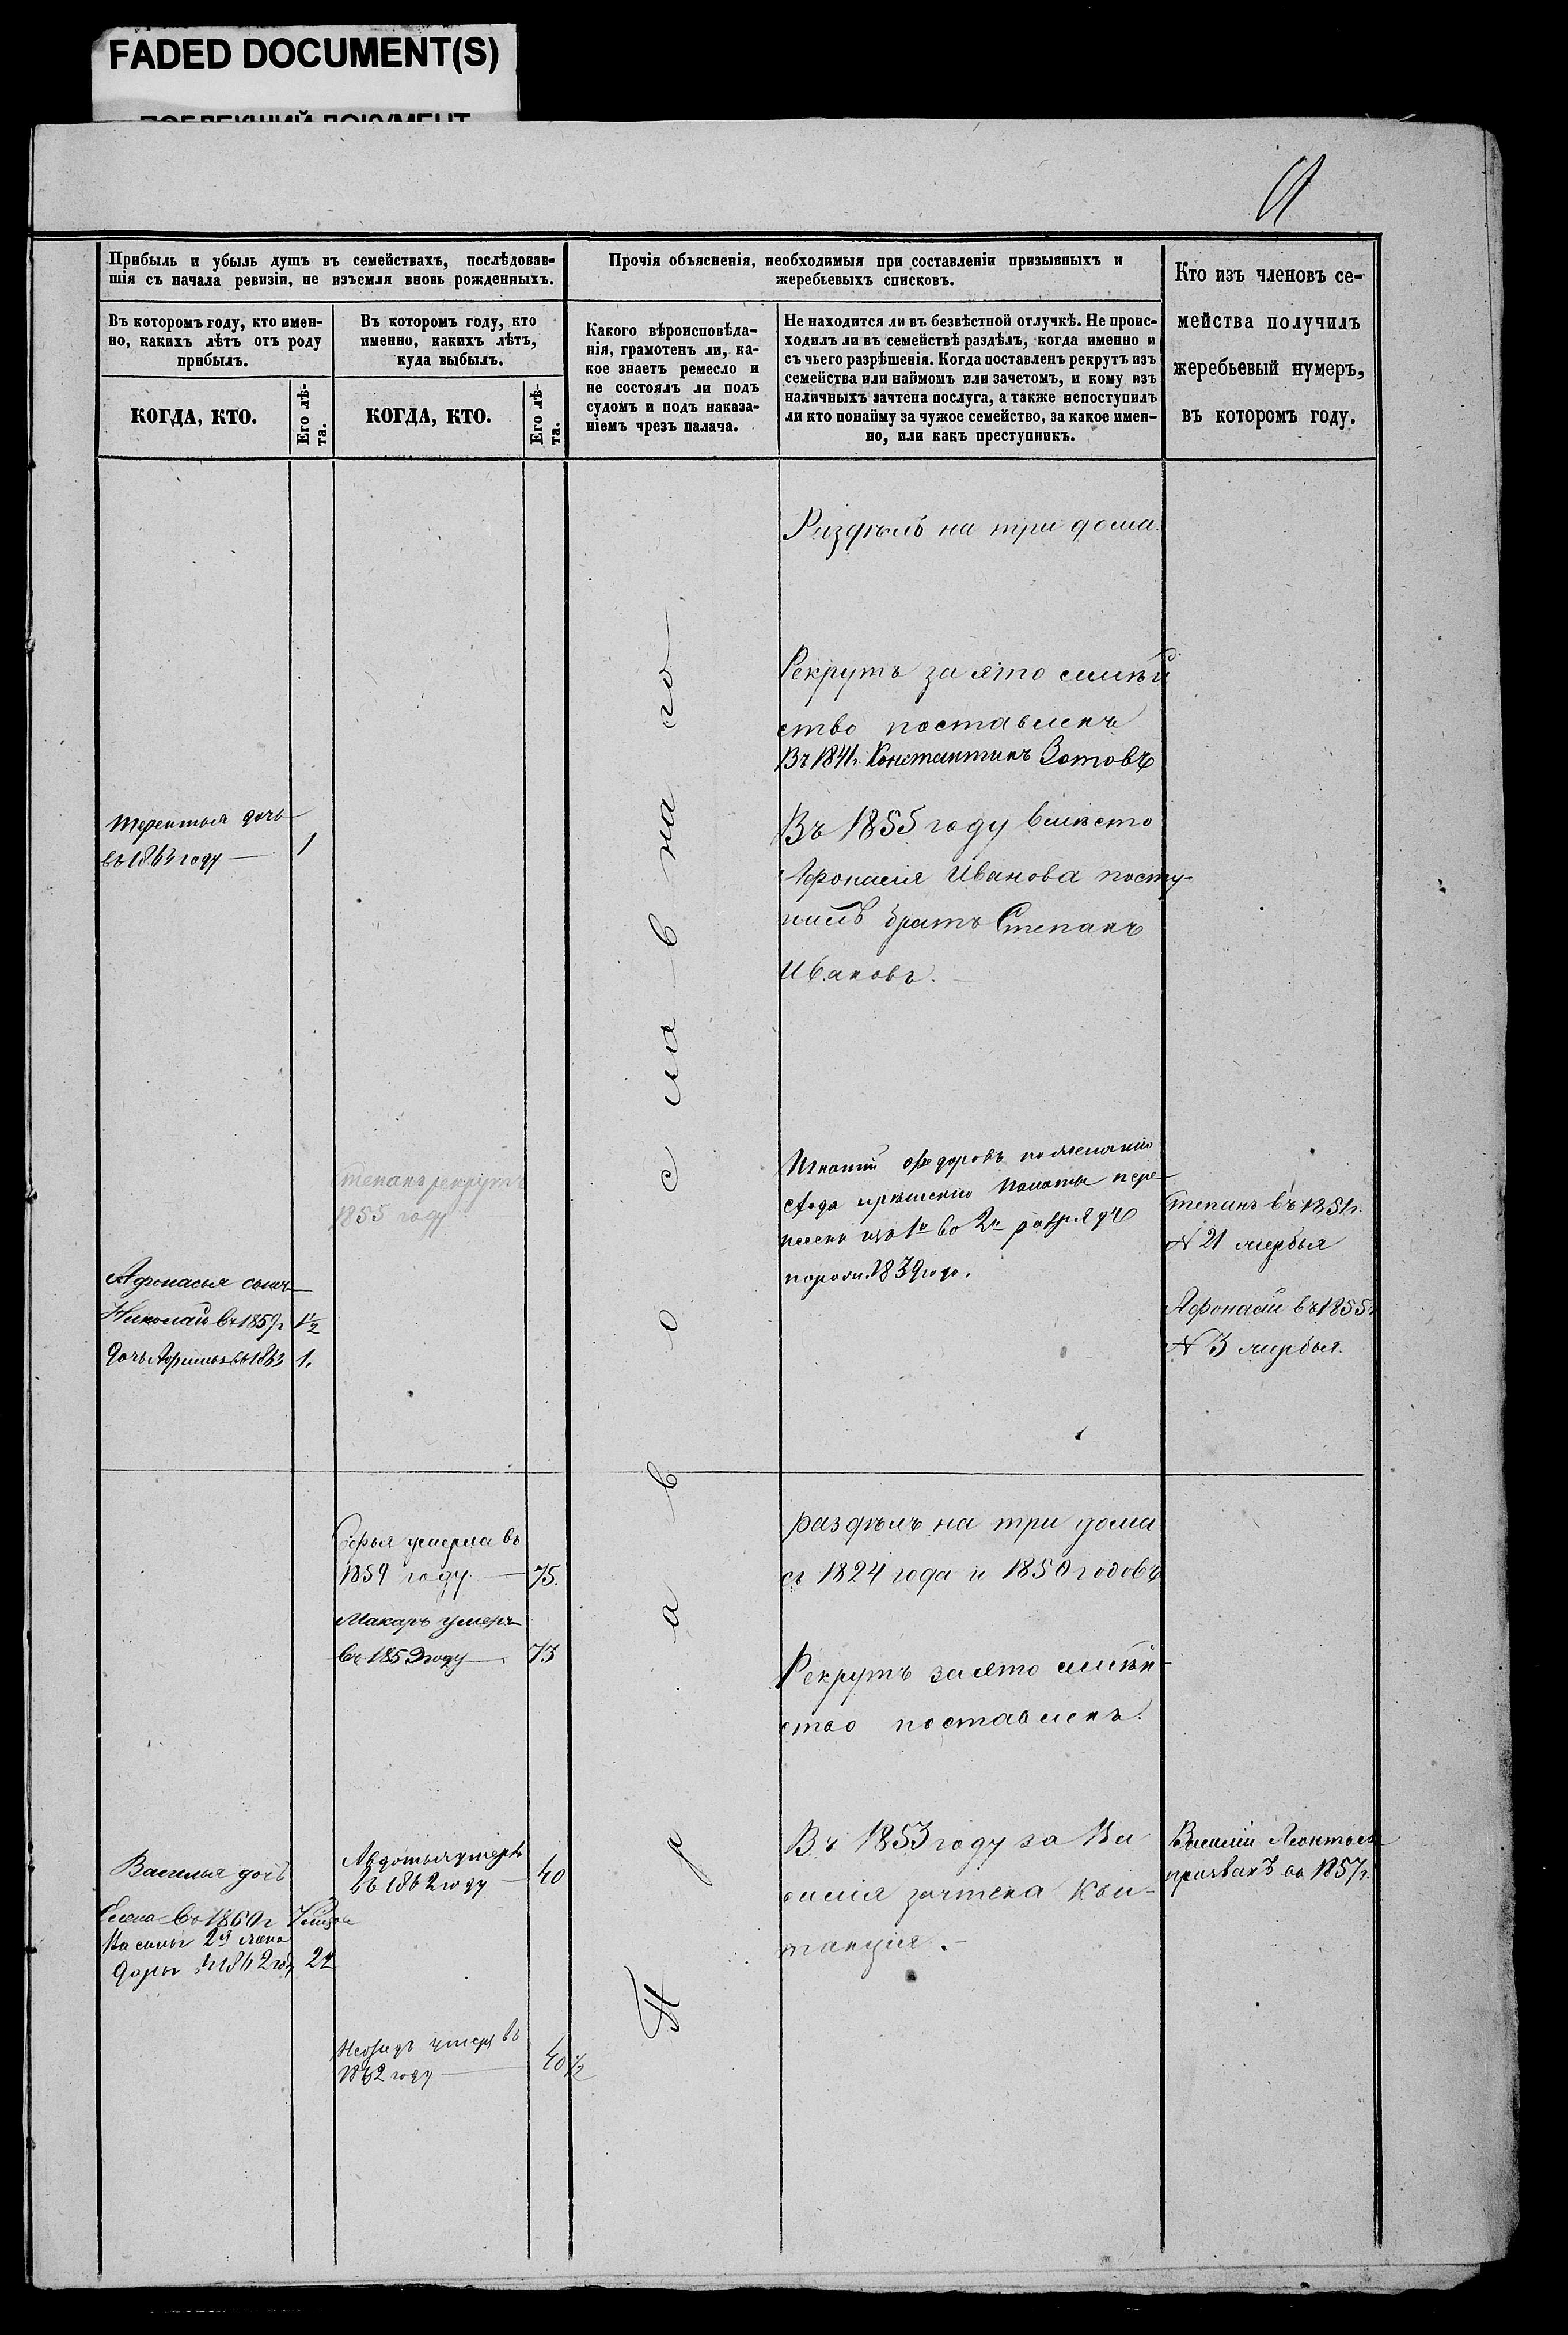 FADED DOCUMENT(S)
Прибыль и убыль душъ въ семействахъ, послѣдовав-
шія съ начала ревизіи, не изъемля вновь рожденныхъ.
Въ которомъ году, кто имен-
но, какихъ лѣтъ отъ роду
прибылъ.
КОГДА, КТО.
Его лѣ-
та.
Въ которомъ году, кто
именно, какихъ лѣтъ,
куда выбылъ.
КОГДА, КТО.
Его лѣ-
та.
Прочія объясненія, необходимыя при составленіи призывныхъ и
жеребьевыхъ списковъ.
Какого вѣроисповѣда-
нія, грамотенъ ли, ка-
кое знаетъ ремесло и
не состоялъ ли подъ
судомъ и подъ наказа-
ніемъ чрезъ палача.
Не находится ли въ безвѣстной отлучкѣ. Не проис-
ходилъ ли въ семействѣ раздѣлъ, когда именно и
съ чьего разрѣшенія. Когда поставленъ рекрутъ изъ
семейства или наймомъ или зачетомъ, и кому изъ
наличныхъ зачтена послуга, а также непоступилъ
ли кто понайму за чужое семейство, за какое имен-
но, или какъ преступникъ.
Кто изъ членовъ се-
мейства получилъ
жеребьевый нумеръ,
въ которомъ году.
Терентья дочь
въ 1863 году 1
Афонасья сынъ
Николай въ 1857 г 1½
дочь 1863 1.
Василья дочь
Елена въ 1860 г 7
2й
1862 24
Степанъ рекрутъ
1855 году
Софья умерла въ
1859 году 75.
Макаръ умеръ
въ 1859 году 73
Авдотья умерла
въ 1862 году 40
умеръ въ
1862 году 40½
Православнаго
Раздѣлъ на три дома.
Рекрутъ за ято семѣй
ство поставленъ
Въ 1841 г. Константинъ Зотовъ
Въ 1855 году вмѣсто
Афонасия Иванова посту-
пилъ братъ Степанъ
Ивановъ.
Игнатий Федоровъ по желанію
Палаты пере
несенъ изъ 1го во 2й разрядъ
1839 года.
раздѣлъ на три дома
съ 1824 года и 1850 годовъ
Рекрутъ за ято семѣй-
ство поставленъ.
Въ 1853 году за Ва
силия зачтена кви-
танция.
Степанъ въ 1851 г.
№ 21 жербья
Афонасий въ 1855 г
№ 3 жербья.
Василий Леонтьевъ
призванъ въ 1857 г.